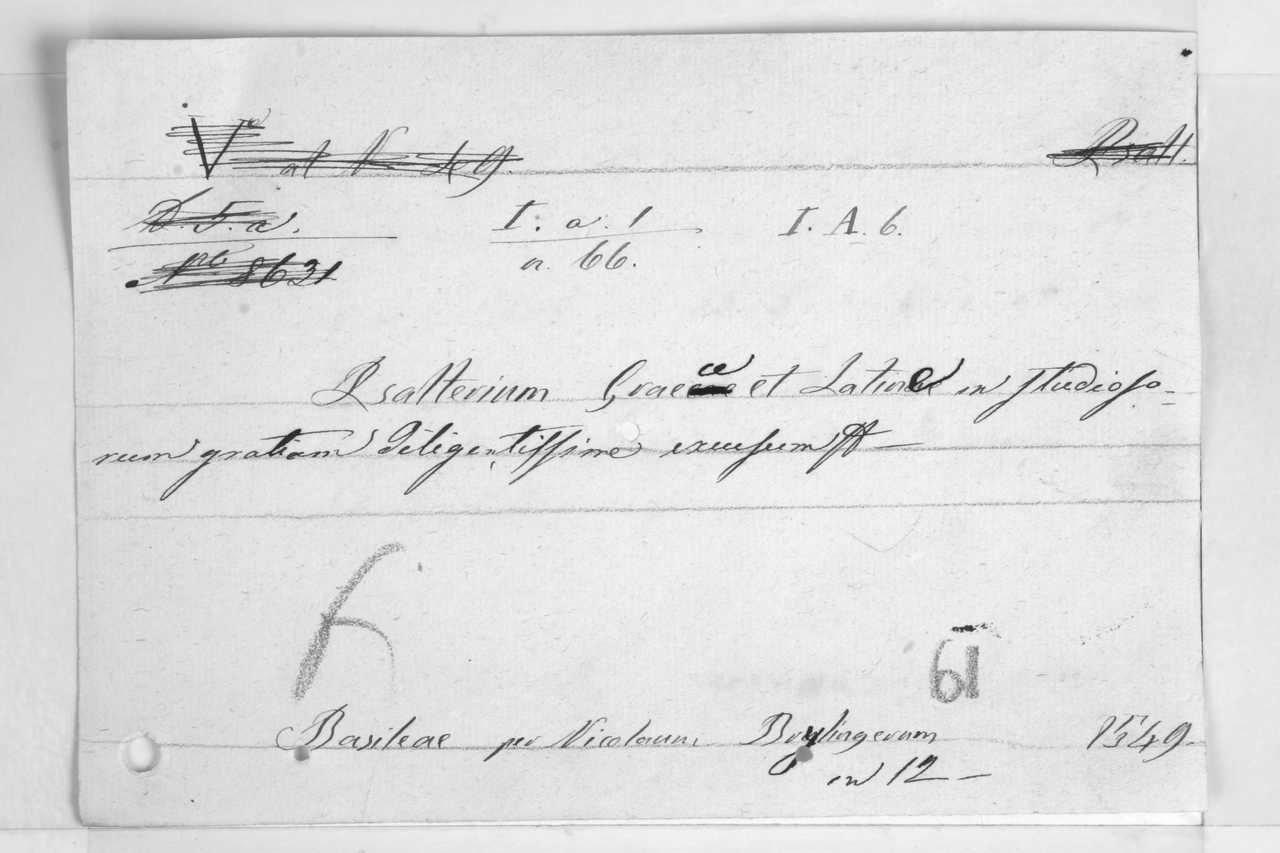 Psalt.
D. 5. a.
nro 8631
I. a. 1
n. 66.
I. A. 6.
Psalterium Graece et Latine in studioso-
rum gratiam diligentissime excusum
61
Basileae per Nicolaum Brylingerum 1549.
in 12 —